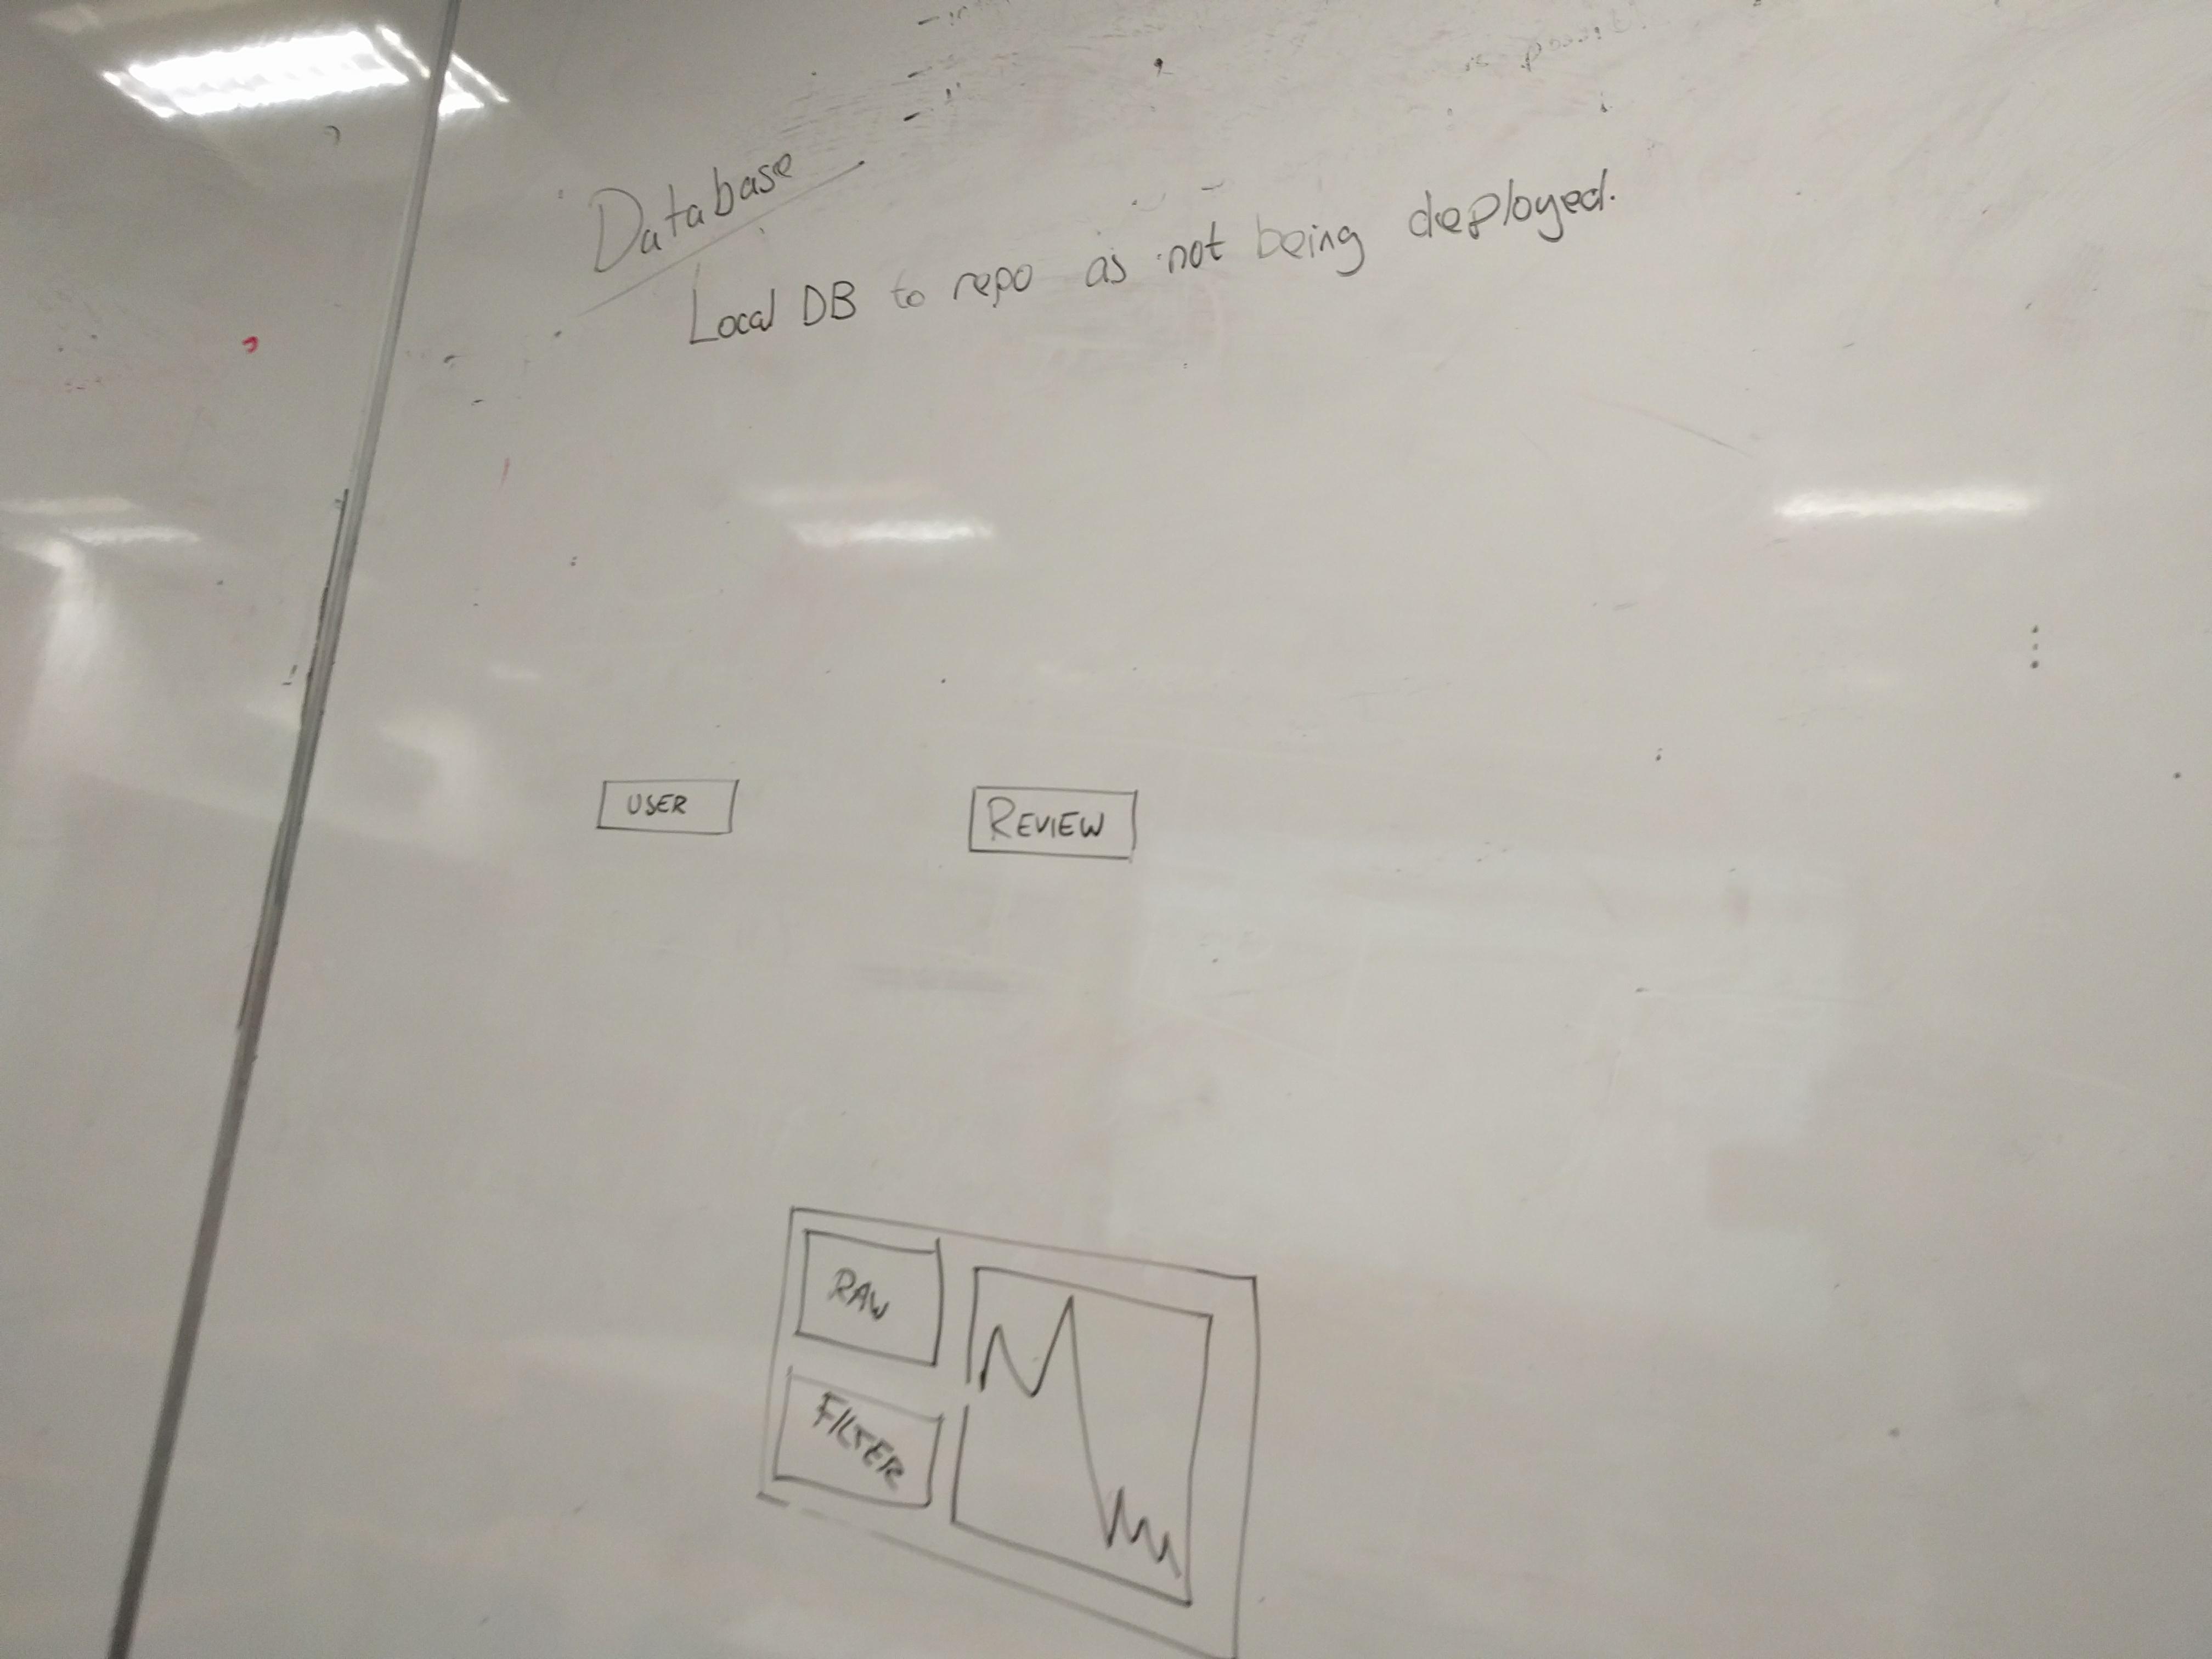 Database
Local DB to repo as not being deployed.
USER
REVIEW
RAW
FILTER